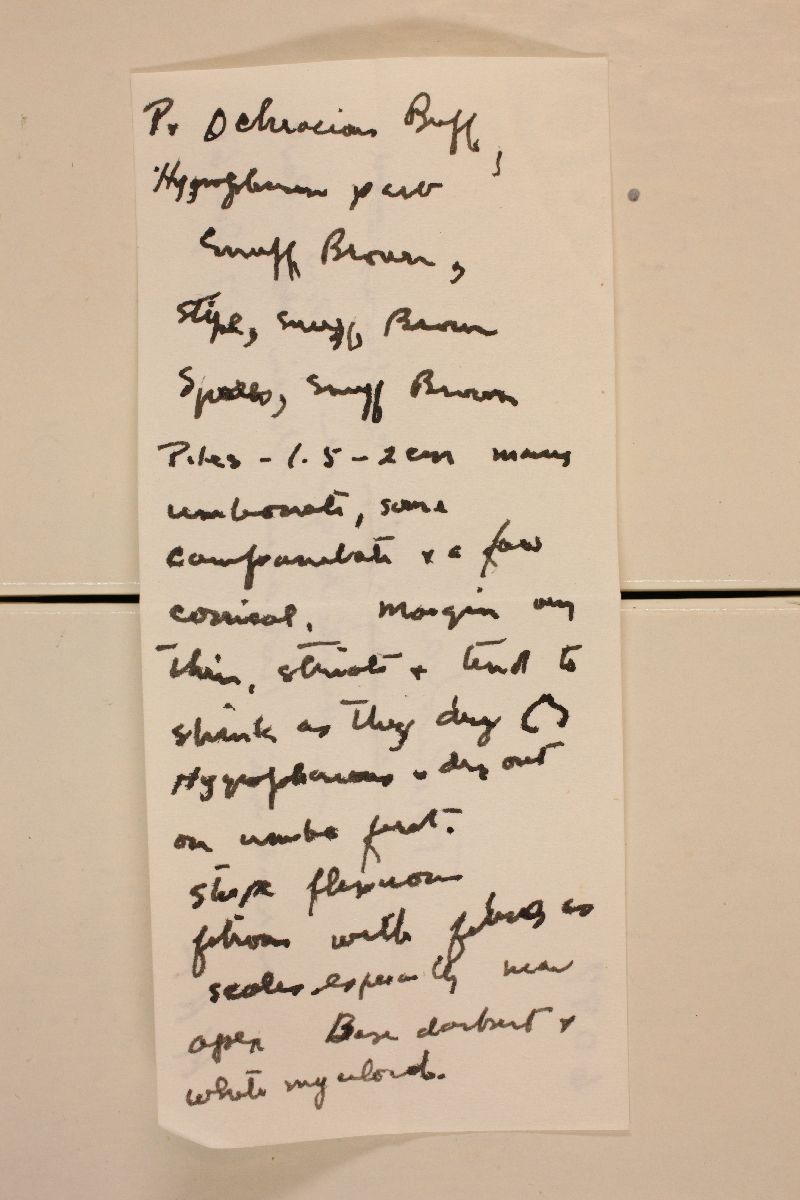 P. Ochracious Buff,
Hygrophanous part
Snuff Brown,
Stipe, Snuff Brown
Spores, Snuff Brown
Piles - 1.5 - 2 cm many
umbonate, some
campanulate + a few
conical. Margin
thin, striate + tend to
shrink as they dry
Hygrophanous + dry out
on umbo first.
Stipe flexuous
fibrous with fibers as
scales especially near
apex Base darkest +
white myceloid.